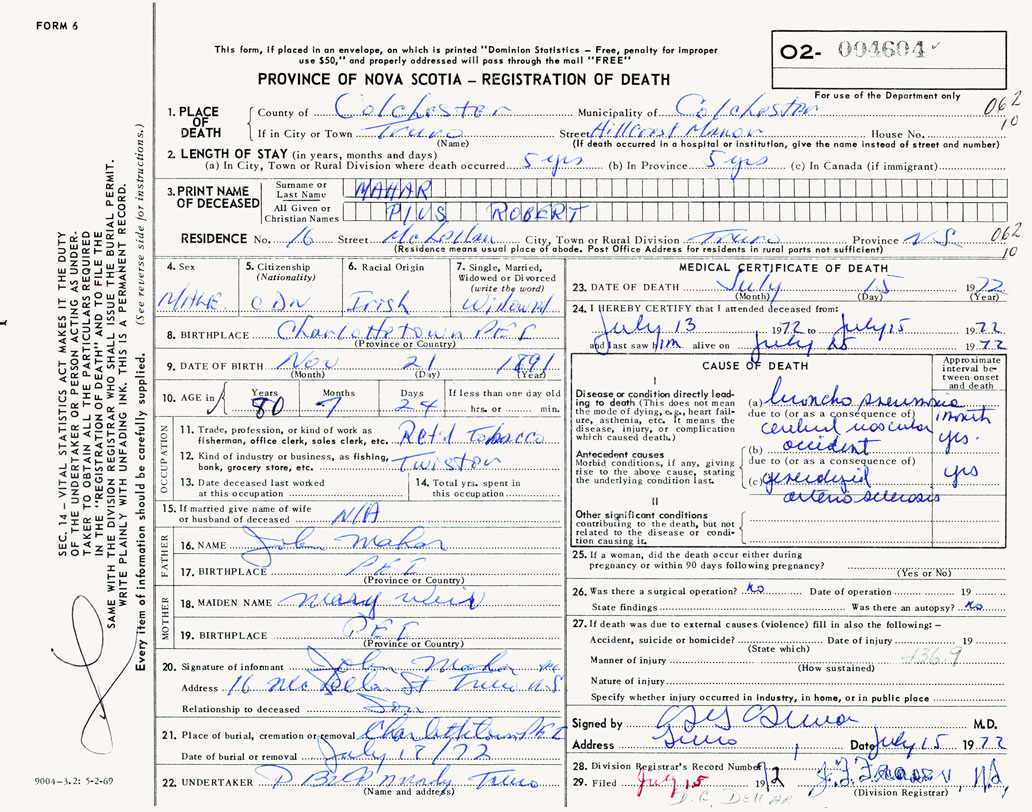 FORM 6
This form, if placed in an envelope, on which is printed "Dominion Statistics – Free, penalty for improper
use $50," and properly addressed will pass through the mail "FREE"
PROVINCE OF NOVA SCOTIA – REGISTRATION OF DEATH
O2- 004604
For use of the Department only
062
10
1. PLACE OF DEATH
County of Colchester Municipality of Colchester
If in City or Town Truro Street Hillcrest Manor House No.
(Name) (If death occurred in a hospital or institution, give the name instead of street and number)
2. LENGTH OF STAY (in years, months and days)
(a) In City, Town or Rural Division where death occurred 5 yrs (b) In Province 5 yrs (c) In Canada (if immigrant)
3. PRINT NAME OF DECEASED
Surname or Last Name MAHAR
All Given or Christian Names PIUS ROBERT
RESIDENCE No. 16 Street McLellan City, Town or Rural Division Truro Province N.S.
(Residence means usual place of abode. Post Office Address for residents in rural parts not sufficient)
062
10
4. Sex MALE
5. Citizenship (Nationality) CDN
6. Racial Origin Irish
7. Single, Married, Widowed or Divorced (write the word) Widowed
8. BIRTHPLACE Charlottetown PEI
(Province or Country)
9. DATE OF BIRTH Nov 21 1891
(Month) (Day) (Year)
10. AGE in Years 80 Months 7 Days 24 If less than one day old
hrs. or min.
OCCUPATION
11. Trade, profession, or kind of work as fisherman, office clerk, sales clerk, etc. Ret'd Tobacco
12. Kind of industry or business, as fishing, bank, grocery store, etc. Twister
13. Date deceased last worked at this occupation
14. Total yrs. spent in this occupation
15. If married give name of wife or husband of deceased N/A
FATHER
16. NAME John Mahar
17. BIRTHPLACE PEI
(Province or Country)
MOTHER
18. MAIDEN NAME Mary Weir
19. BIRTHPLACE PEI
(Province or Country)
20. Signature of informant John Mahar
Address 16 McLellan St Truro N.S
Relationship to deceased Son
21. Place of burial, cremation or removal Charlottetown PEI
Date of burial or removal July 17/72
22. UNDERTAKER Truro
(Name and address)
MEDICAL CERTIFICATE OF DEATH
23. DATE OF DEATH July 15 1972
(Month) (Day) (Year)
24. I HEREBY CERTIFY that I attended deceased from:
July 13 1972 to July 15 1972
and last saw him alive on July 15 1972
CAUSE OF DEATH
Approximate interval between onset and death
I
Disease or condition directly leading to death (This does not mean the mode of dying, e.g., heart failure, asthenia, etc. it means the disease, injury, or complication which caused death.)
(a) broncho pneumonia 1 month
due to (or as a consequence of)
cerebral vascular yrs.
(b) accident
Antecedent causes
Morbid conditions, if any, giving rise to the above cause, stating the underlying condition last.
due to (or as a consequence of)
(c) generalized yrs
arterio sclerosis
II
Other significant conditions
contributing to the death, but not related to the disease or condition causing it.
25. If a woman, did the death occur either during
pregnancy or within 90 days following pregnancy?
(Yes or No)
26. Was there a surgical operation? No Date of operation 19
State findings Was there an autopsy? No
27. If death was due to external causes (violence) fill in also the following: –
Accident, suicide or homicide? Date of injury 19
(State which)
Manner of injury 436.9
(How sustained)
Nature of injury
Specify whether injury occurred in Industry, in home, or in public place
Signed by M.D.
Address Truro Date July 15 1972
28. Division Registrar's Record Number
29. Filed July 15 1972
(Division Registrar)
SEC. 14 – VITAL STATISTICS ACT MAKES IT THE DUTY
OF THE UNDERTAKER OR PERSON ACTING AS UNDER-
TAKER TO OBTAIN ALL THE PARTICULARS REQUIRED
IN THE "REGISTRATION OF DEATH" AND TO FILE THE
SAME WITH THE DIVISION REGISTRAR WHO SHALL ISSUE THE BURIAL PERMIT.
WRITE PLAINLY WITH UNFADING INK. THIS IS A PERMANENT RECORD.
Every item of information should be carefully supplied. (See reverse side for instructions.)
9004–3.2: 5-2-69